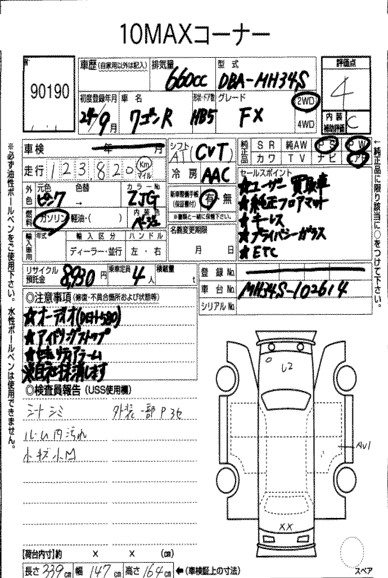 10MAXコーナー
90190
車歴 (自家用以外は記入) 排気量 型式 評価点
660cc DBA-MH34S 4
初度登録年月 車名 形状・ドア数 グレード 2WD
24年9月 ワゴンR HB5 FX 4WD
内装 補助評価 C
車検 年 月
シフト AT CVT
純正品 SR 純AW PS PW
カワ TV ナビ
走行 123820 km マイル
冷房 AAC
外色 元色 色替 カラーNo.
ピンク ZJG
新車整備手帳 (保証書付) 有・無
燃料 ガソリン 軽油・( ) 内装色 ベージュ
輸入車用 輸入区分 ハンドル
ディーラー・並行 左・右
名義変更期限
月 日
セールスポイント
★ユーザー買取車
★純正フロアマット
★キーレス
★プライバシーガラス
★ETC
純正品に限り該当に○をつけて下さい。
※必ず油性ボールペンをご使用下さい。水性ボールペンは使用不可です。
リサイクル預託金 8,930円 乗車定員 4人 積載量
登録No.
車台No. MH34S-102614
シリアルNo.
◎注意事項 (修復・不具合箇所および状態等)
★オーディオ(DEH-580)
★アイドリングストップ
★セキュリティアラーム
◎検査員報告 (USS使用欄)
シートシミ 外装一部P予
ルーム内汚れ
小キズ小凹
U2
AU1
XX
スペア
【荷台内寸】約 × × cm
長さ 339 cm 幅 147 cm 高さ 164 cm ←(車検証上の寸法)